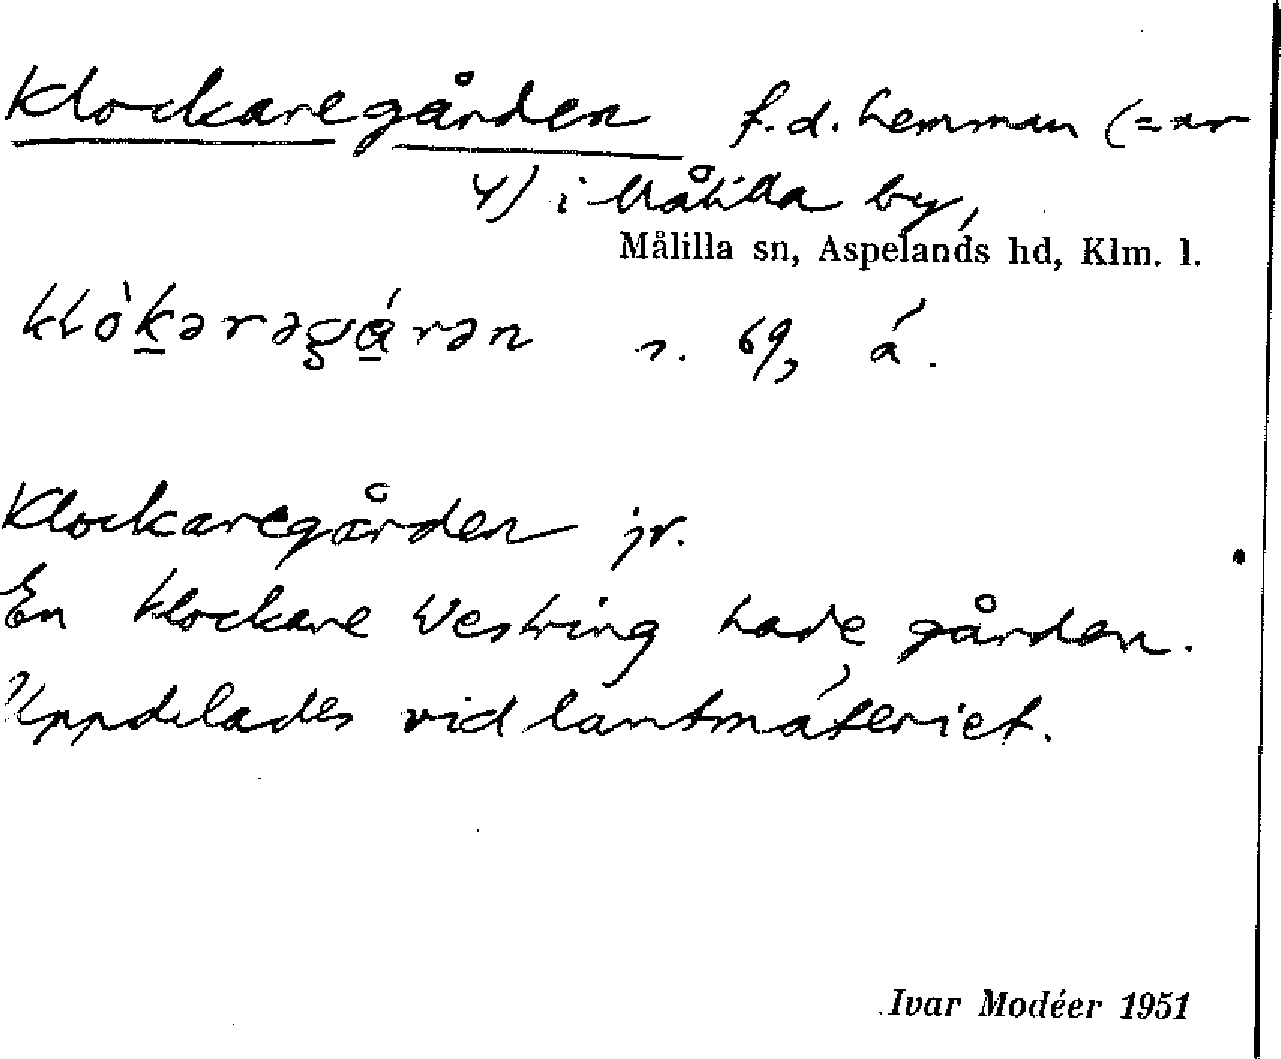 Klockaregården f.d. hemman (= nr
4) i Målilla by,
Målilla sn, Aspelands hd, Klm. l.
s. 69, á.
Klockaregården jr.
En klockare Westring hade gården.
Uppdelades vid lantmäteriet.
Ivar Modéer 1951